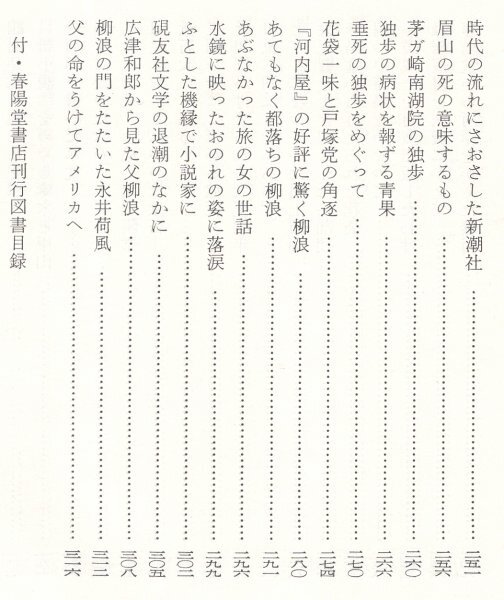 時代の流れにさおさした新潮社……二五一
眉山の死の意味するもの……二五六
茅ガ崎南湖院の独歩……二六〇
独歩の病状を報ずる青果……二六六
垂死の独歩をめぐって……二七〇
花袋一味と戸塚党の角逐……二七四
『河内屋』の好評に驚く柳浪……二八〇
あてもなく都落ちの柳浪……二九一
あぶなかった旅の女の世話……二九六
水鏡に映ったおのれの姿に落涙……二九九
ふとした機縁で小説家に……三〇二
硯友社文学の退潮のなかに……三〇五
広津和郎から見た父柳浪……三〇八
柳浪の門をたたいた永井荷風……三一二
父の命をうけてアメリカへ……三一六
付・春陽堂書店刊行図書目録